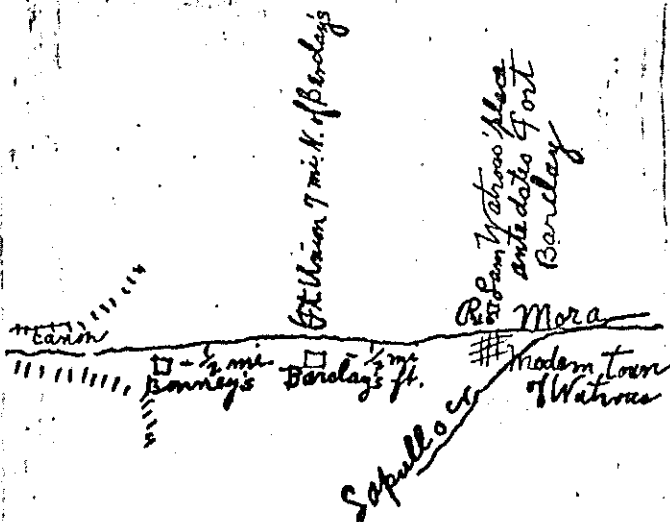 Ft. Union 7 mi. N. of Barclay's
Sam Watrous' place
antedates Fort
Barclay
Canon
Rio Mora
1/2 mi
1/2 mi
Bonney's
Barclay's ft.
Modern town
of Watrous
Sapullo